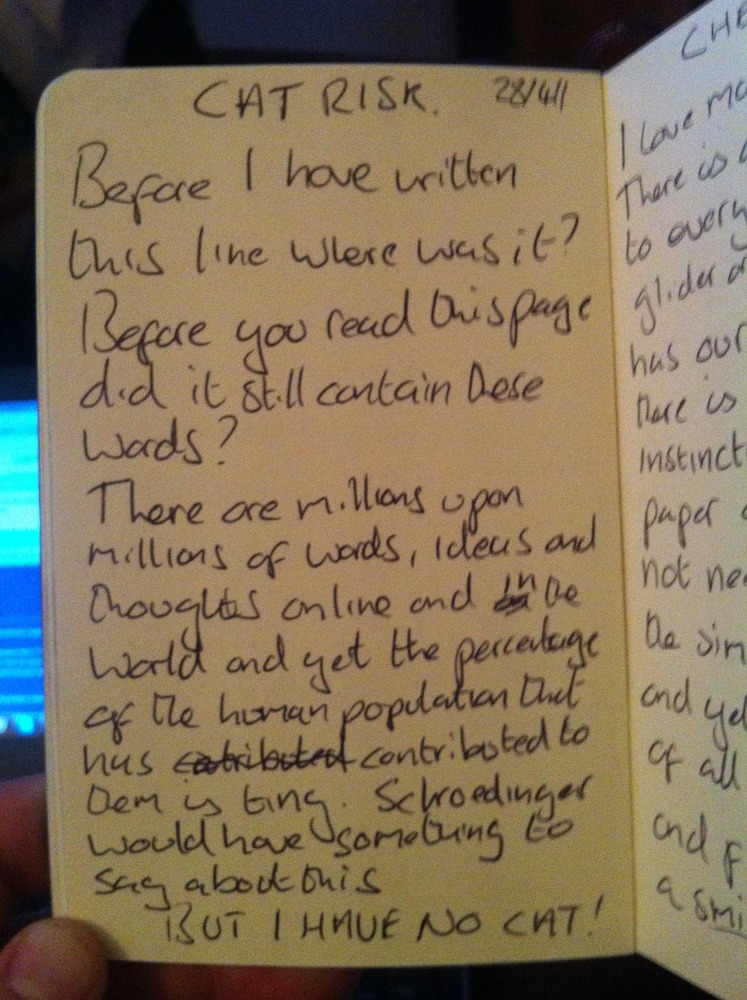 CAT RISK. 28/4/11
Before I have written
this line where was it?
Before you read this page
did it still contain these
words?
There are millions upon
millions of words, ideas and
thoughts online and in the
world and yet the percentage
of the human population that
has catributed contributed to
them is tiny. Schroedinger
would have something to
say about this
BUT I HAVE NO CAT!
CHE
I love mo
There is
to every
glider or
has our
there is
instinct
paper
not ne
the sim
and yet
of all
and f
a smi